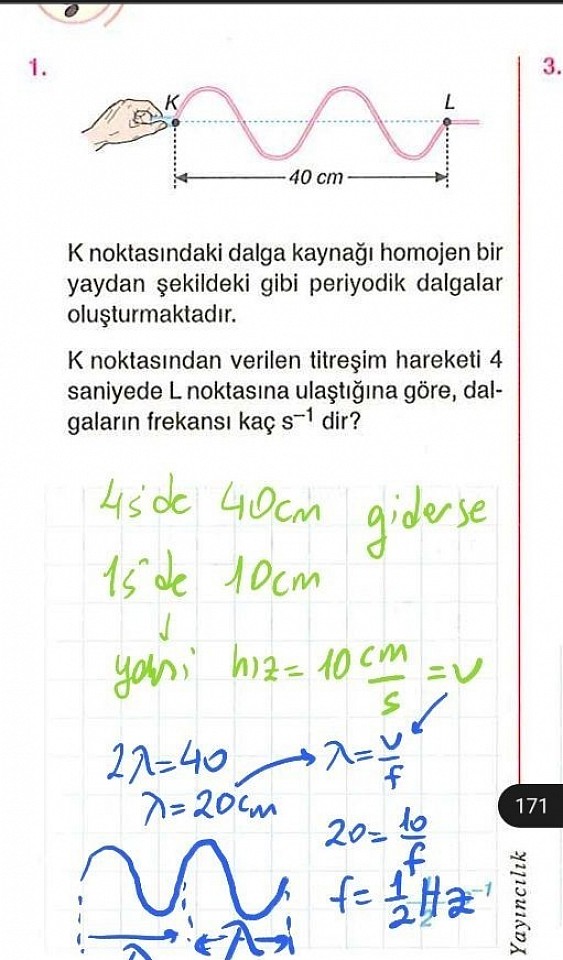 1.
3.
K
L
40 cm
K noktasındaki dalga kaynağı homojen bir
yaydan şekildeki gibi periyodik dalgalar
oluşturmaktadır.
K noktasından verilen titreşim hareketi 4
saniyede L noktasına ulaştığına göre, dal-
gaların frekansı kaç s⁻¹ dir?
4s'de 40cm giderse
1s'de 10cm
↓
yani hız = 10 cm/s = v
2λ=40
λ=20cm
λ=v/f
20=10/f
f=1/2 Hz
λ
λ
171
Yayıncılık